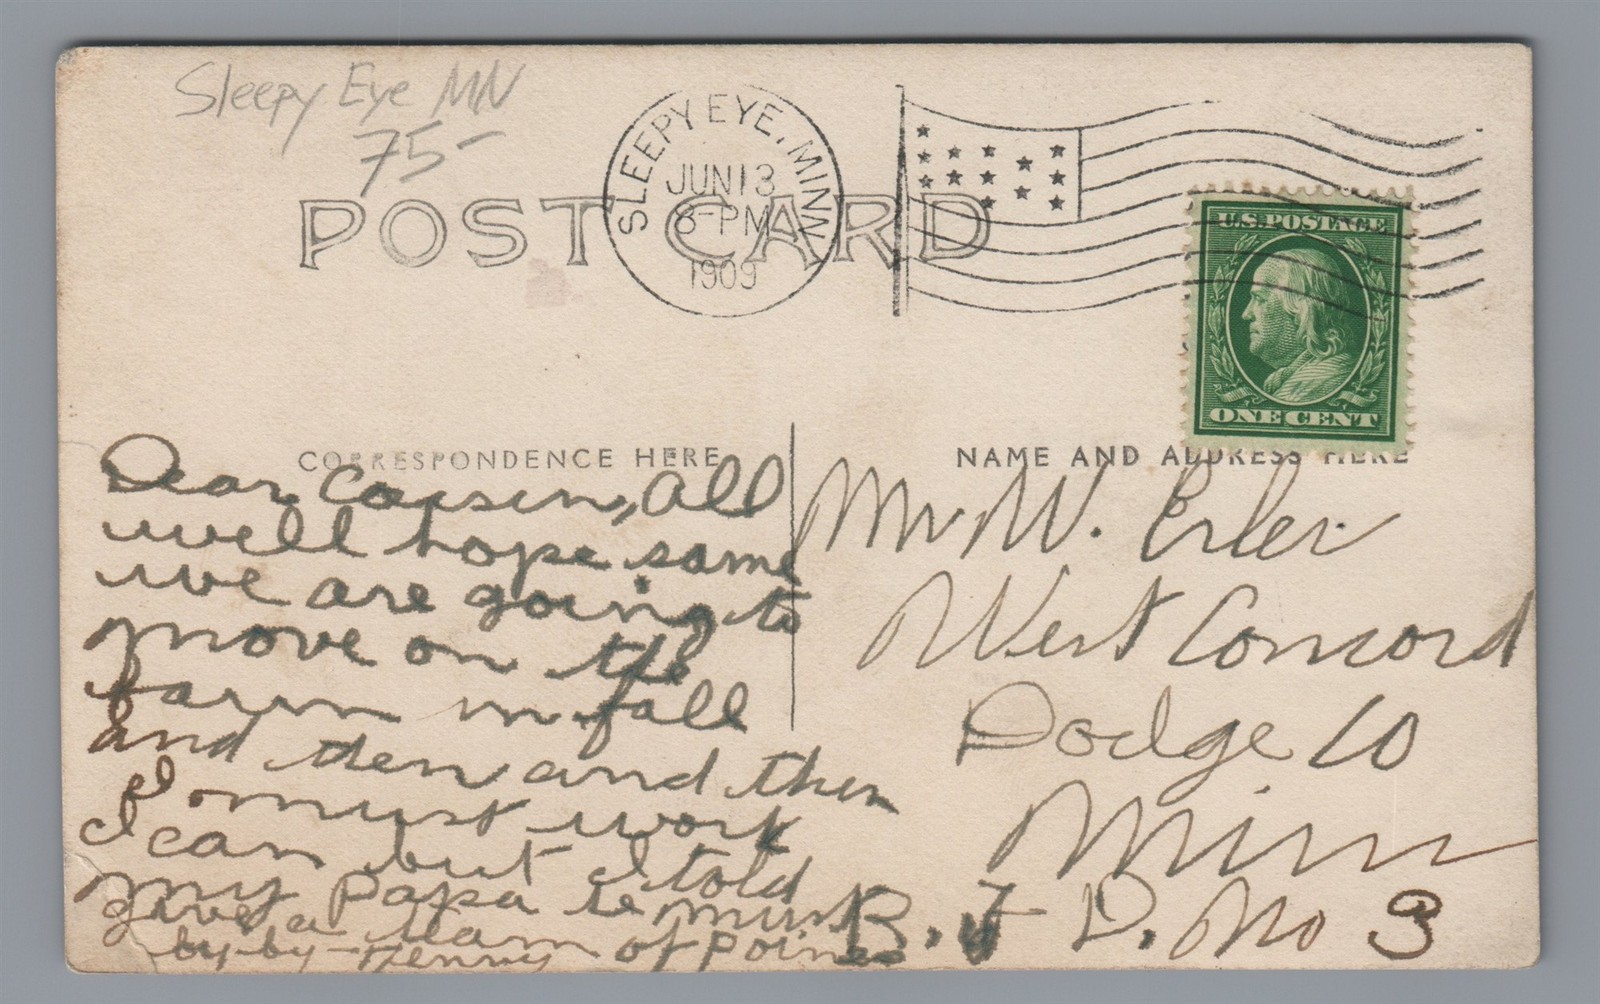 Sleepy Eye MN
75-
POST CARD
SLEEPY EYE, MINN.
JUN 13
8-PM
1909
U.S. POSTAGE
ONE CENT
CORRESPONDENCE HERE
NAME AND ADDRESS HERE
Dear Cousin, All
well hope same
we are going to
move on the
farm in fall
and then and then
I must work
I can but I told
my papa he must
give a team of poines
by-by-
Mr W. Erler
West Concord
Dodge Co
Minn
R. F D. No 3